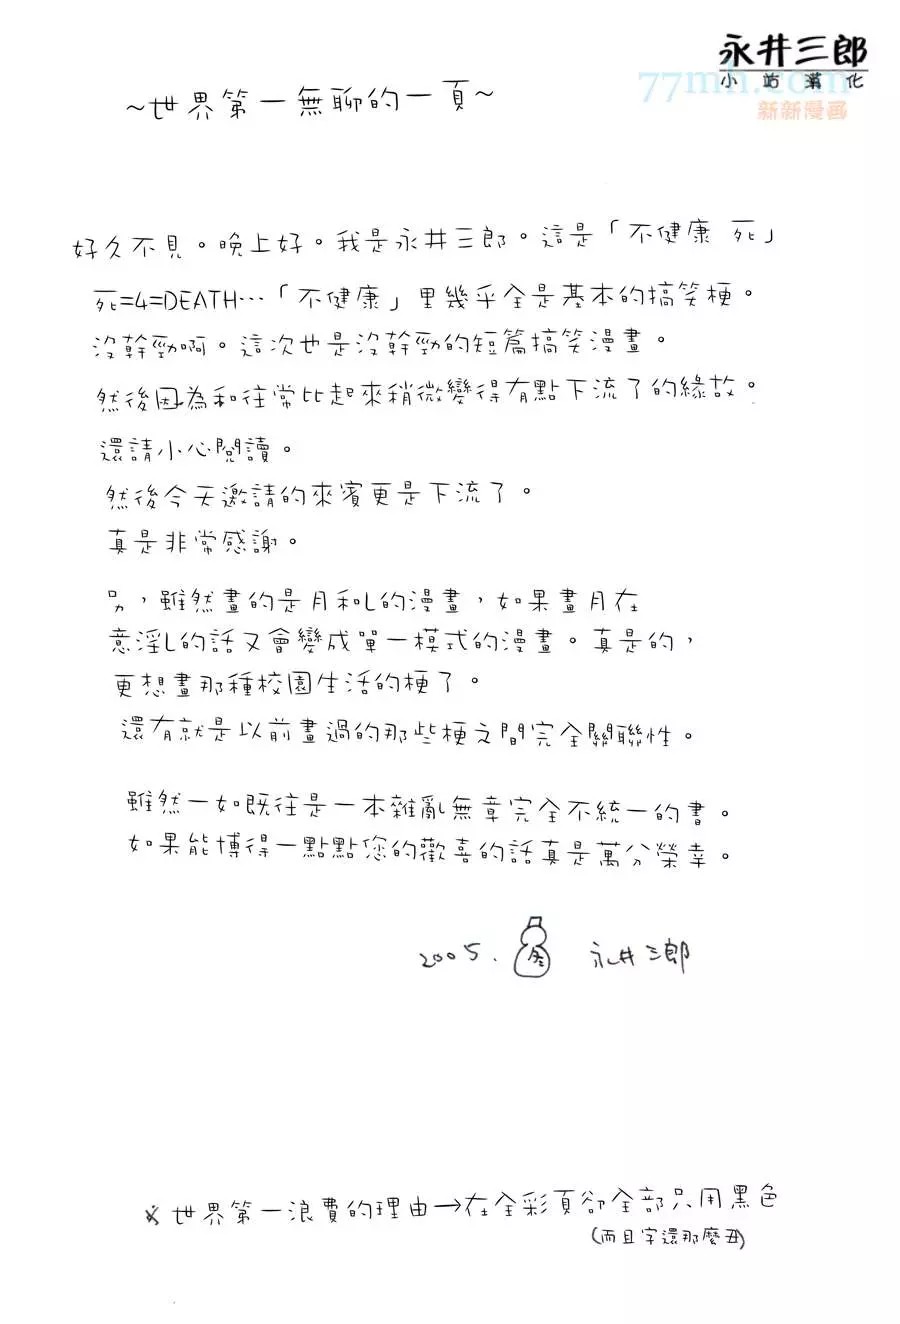 永井三郎
小站漢化
77mh.com
新新漫画
~世界第一無聊的一頁~
好久不見。晚上好。我是永井三郎。這是「不健康 死」
死=4=DEATH…「不健康」里幾乎全是基本的搞笑梗。
沒幹勁啊。這次也是沒幹勁的短篇搞笑漫畫。
然後因為和往常比起來稍微變得有點下流了的緣故。
還請小心閱讀。
然後今天邀請的來賓更是下流了。
真是非常感謝。
另，雖然畫的是月和L的漫畫，如果畫月在
意淫L的話又會變成單一模式的漫畫。真是的，
更想畫那種校園生活的梗了。
還有就是以前畫過的那些梗之間完全關聯性。
雖然一如既往是一本雜亂無章完全不統一的書。
如果能博得一點點您的歡喜的話真是萬分榮幸。
2005. 冬 永井三郎
※世界第一浪費的理由→在全彩頁卻全部只用黑色
(而且字還那麼丑)